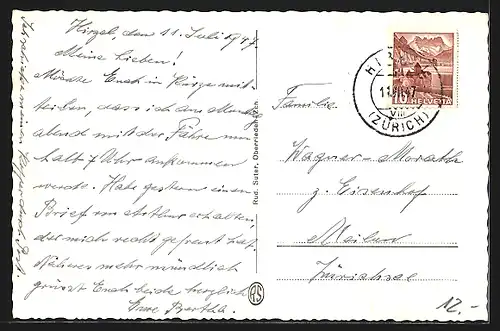 Hirzel, den 11. Juli 1947.
Meine Lieben!
Möchte Euch in Kürze mit-
teilen, dass ich am Montag
abend mit der Fähre um
halb 7 Uhr ankommen
werde. Habe gestern einen
Brief von Arthur erhalten
der mich recht gefreut hat.
Näheres mehr mündlich
grüsst Euch beide herzlich
Eure Bertha.
Rud. Suter, Oberrieden-Zch.
RS
HIRZEL
11.VII.47
(ZÜRICH)
10 HELVETIA
Familie
Wagner-Morath
z. Eisenhof
Meilen
Zürichsee
12.-